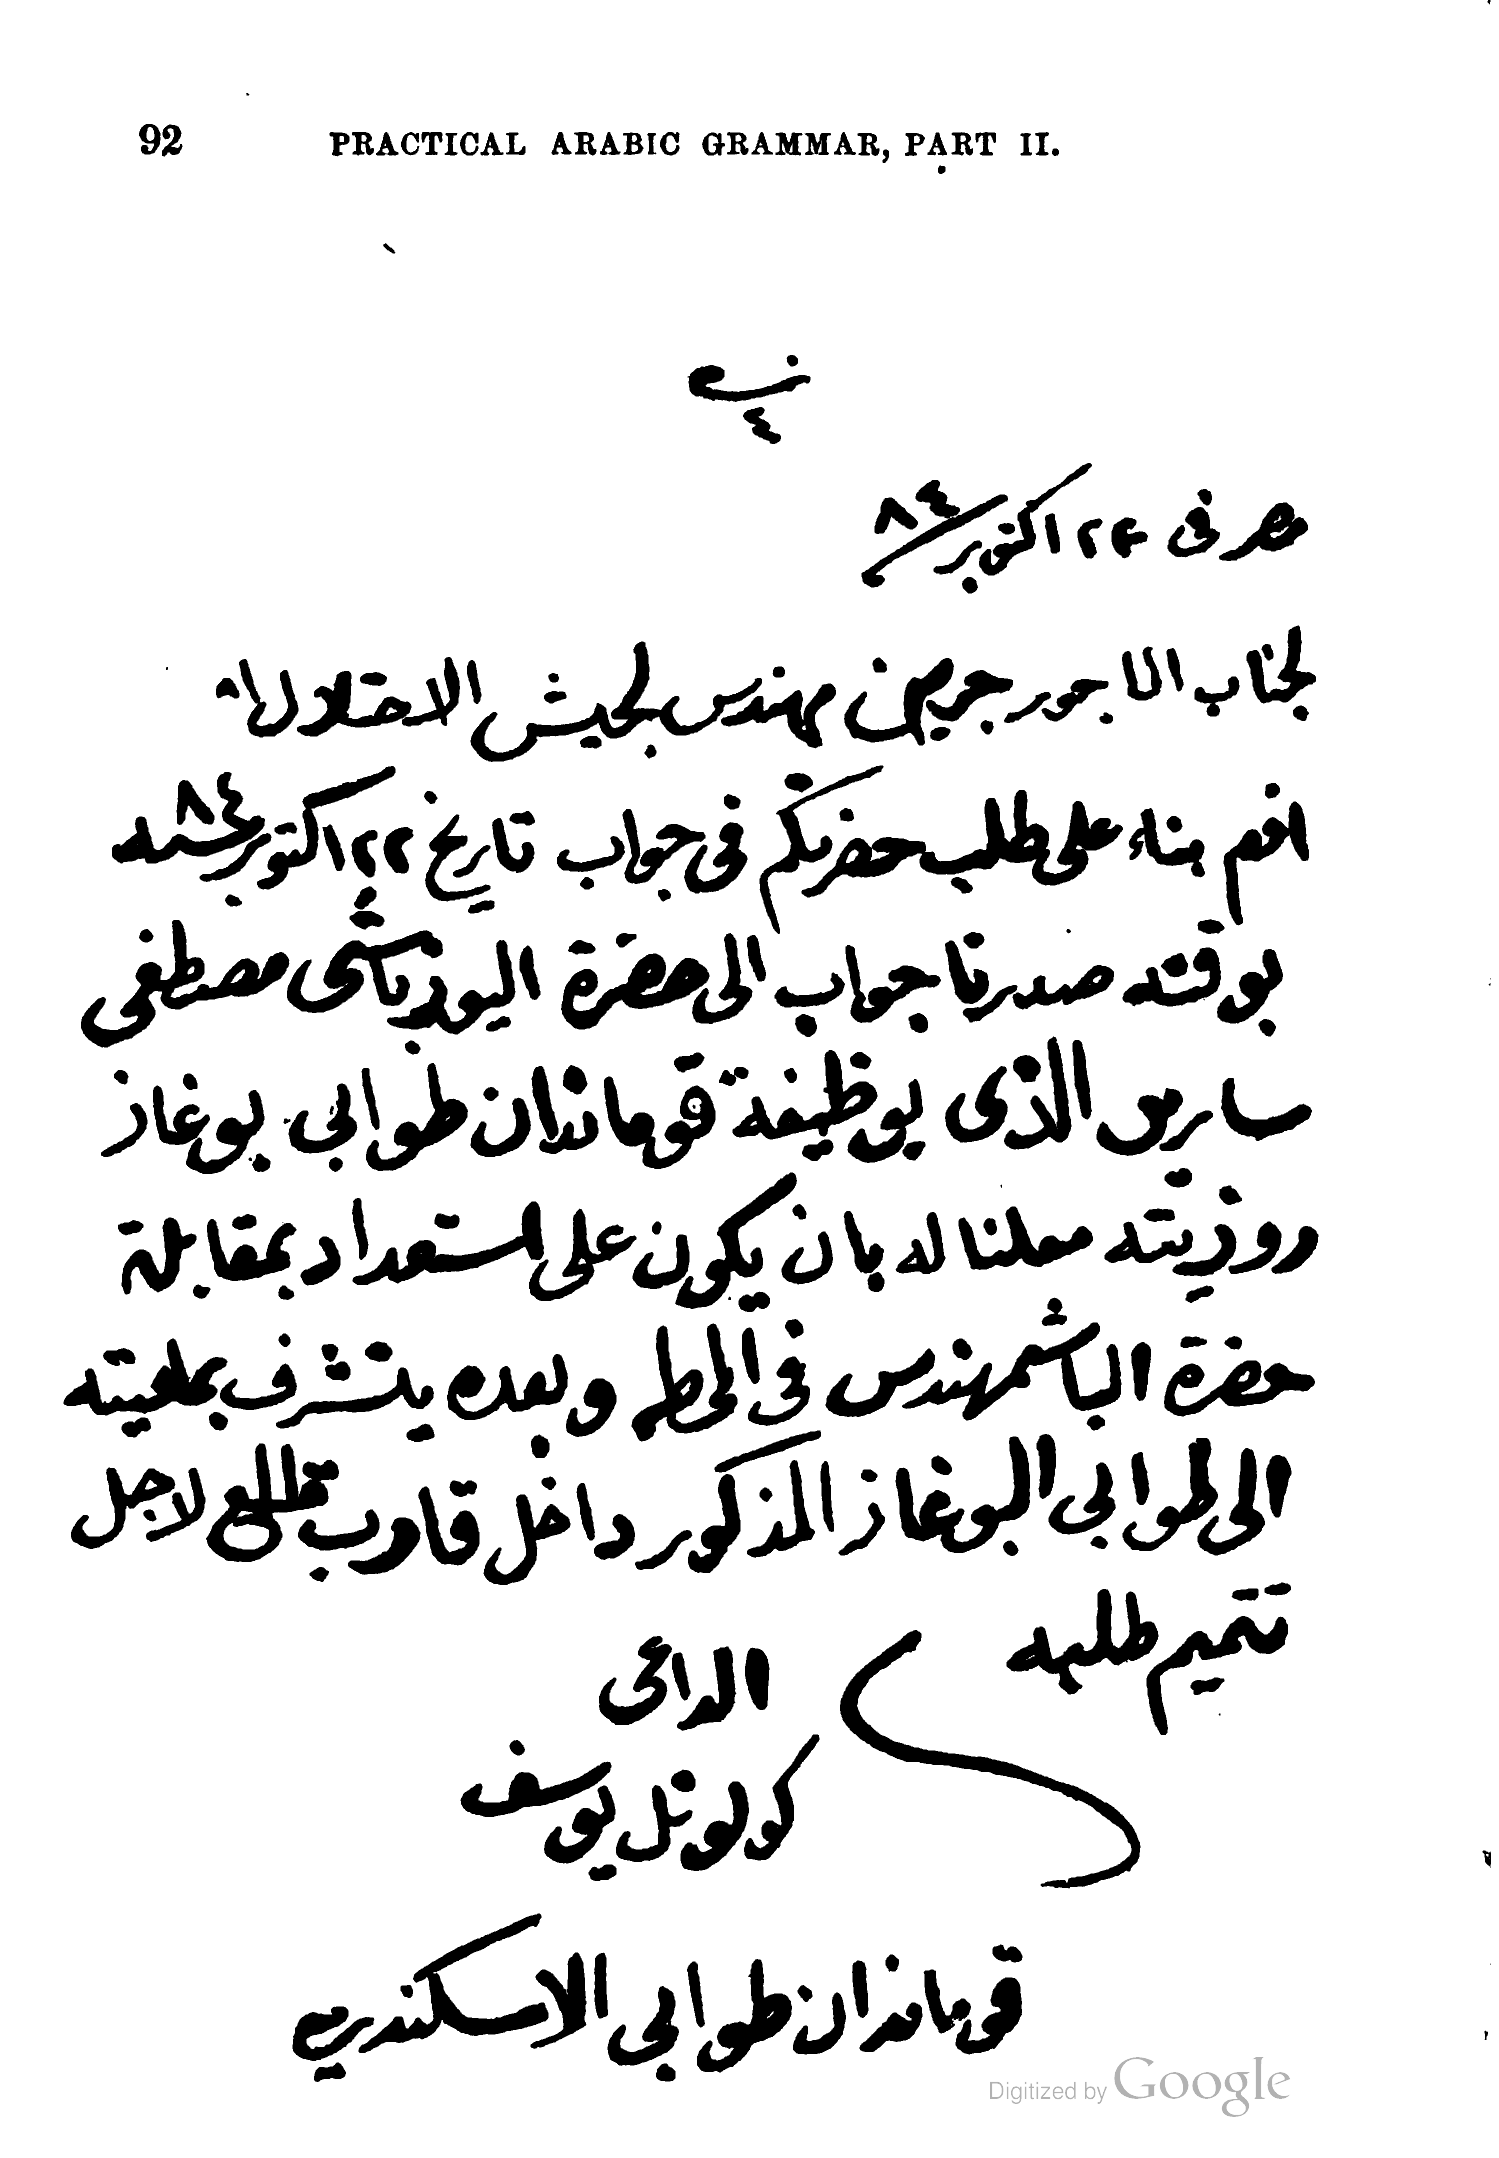 92 PRACTICAL ARABIC GRAMMAR, PART II.
٤
مصر فى ٢٣ اكتوبر ٨٤
لجناب الماجور جريمن مهندس لجيش الاحتلال
افندم بناء على طلب حضرتكم فى جواب تاريخ ٢٢ اكتوبر سنه ٨٤
بوقته صدرنا جواب الى حضرة اليوزباشى مصطفى
سارى الذى بوظيفة قومندان طوابى بوغاز
وروزيته معلنا له بان يكون على استعداد بمقابلة
حضرة الباشمهندس فى المحطه وبعده يتشرف بمعيته
الى طوابى البوغاز المذكور داخل قارب لاجل
تتميم طلبه
الداعى
كولونل يوسف
قومندان طوابى الاسكندريه
Digitized by Google